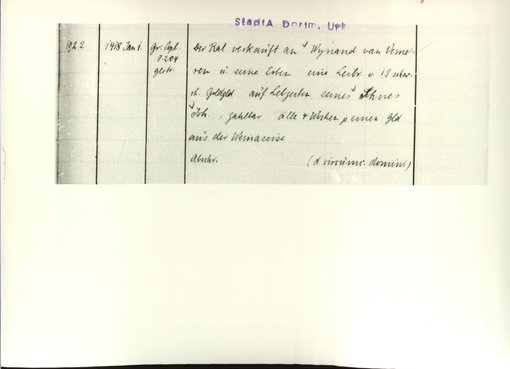 StadtA Dortm. Urk
1922
1418 Jan 1
Gr. Copb.
I 204
gestr.
Der Rat verkauft an Wynand van Ume-
ren u seine Erben eine Leibr. v. 13
rh. Goldgld auf Lebzeiten seines Sohnes
Joh., zahlbar alle 4 Wochen je einen Gld
aus der Weinaccise.
Abschr.
(d circumc. domini)